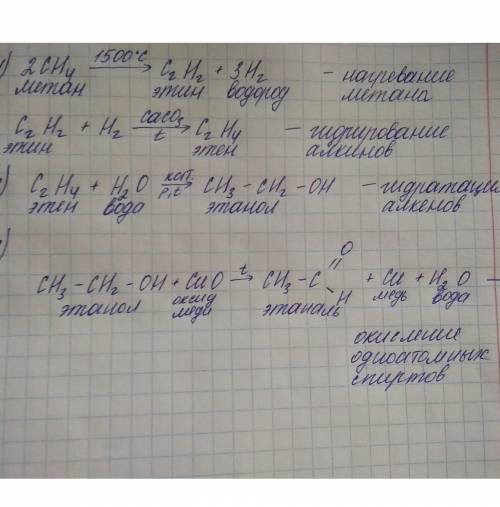 ) 2CH4 1500°C → C2H2 + 3H2 – нагревание
метан этин водород метана
C2H2 + H2 CaCO3 t → C2H4 – гидрирование
этин этен алкинов
) C2H4 + H2O кат. p,t → CH3 – CH2 – OH – гидратация
этен вода этанол алкенов
) CH3 – CH2 – OH + CuO t → CH3 – C = O – H + Cu + H2O –
этанол оксид меди этаналь медь вода
окисление
одноатомных
спиртов